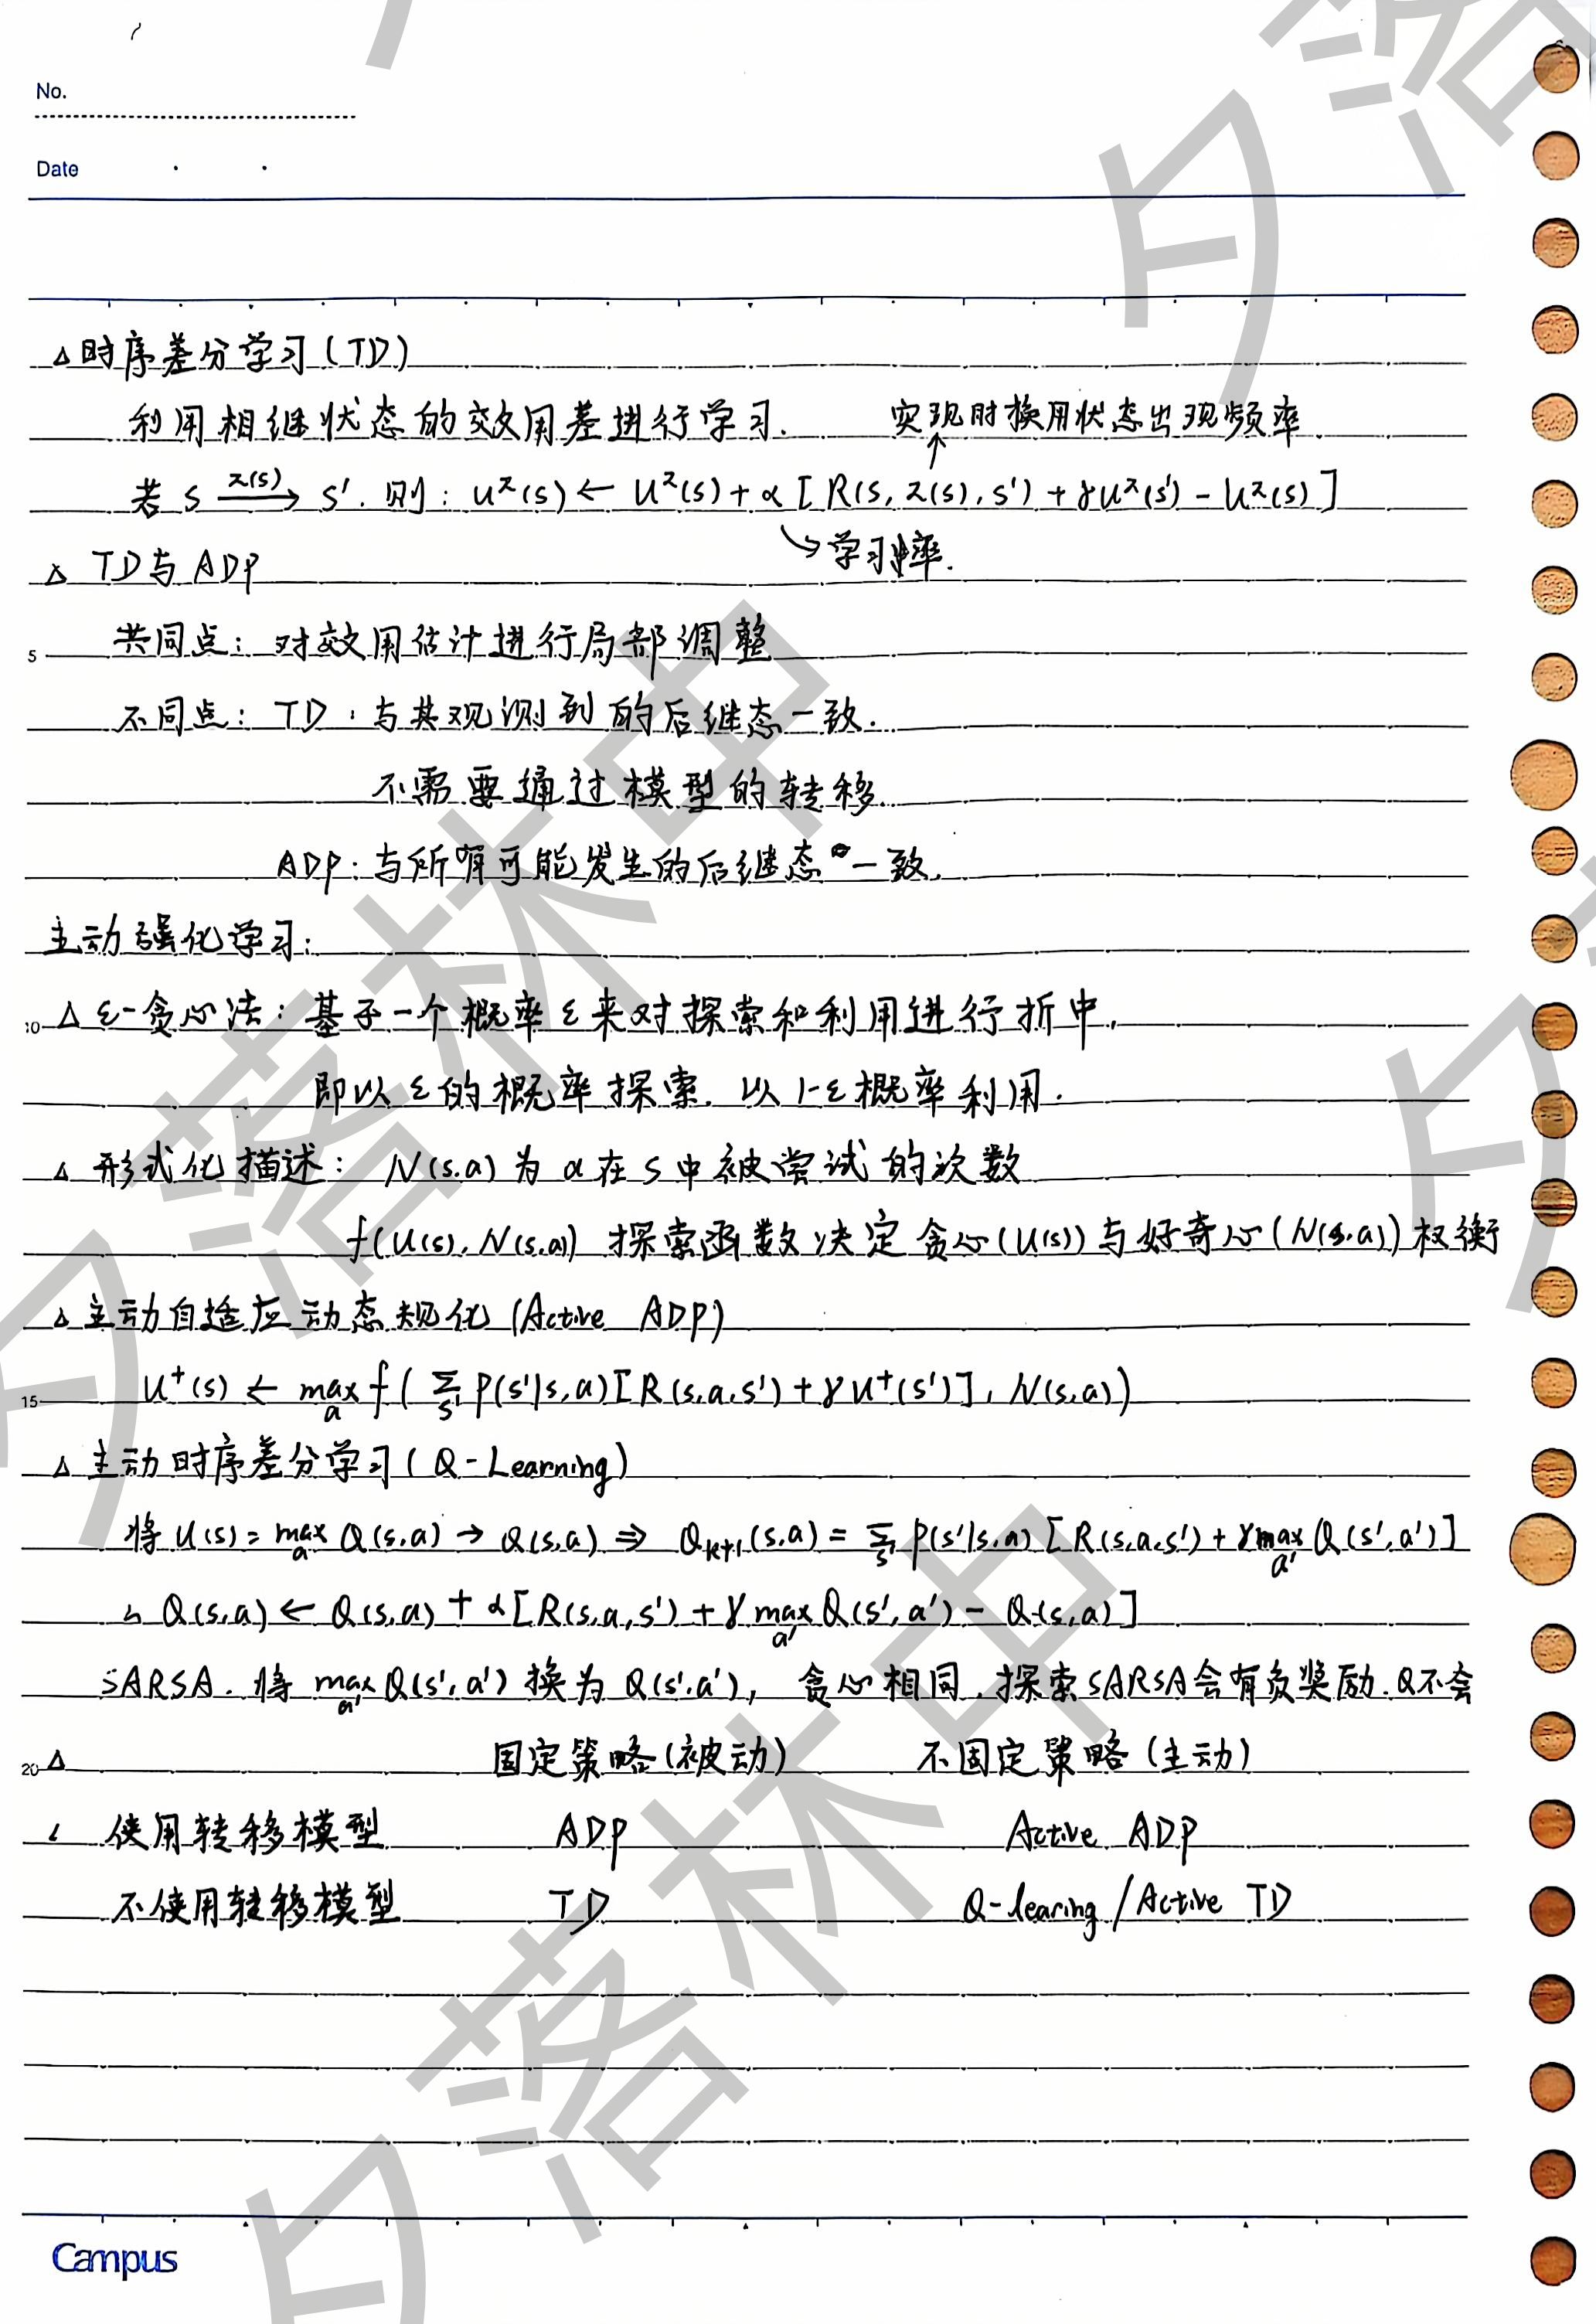 No.
Date
△时序差分学习(TD)
利用相继状态的效用差进行学习. 实现时换用状态出现频率
若 s —π(s)→ s'. 则: U^π(s) ← U^π(s) + α [R(s, π(s), s') + γU^π(s') - U^π(s)]
↳学习率.
△ TD与ADP
5 共同点: 对效用估计进行局部调整
不同点: TD: 与其观测到的后继态一致.
不需要通过模型的转移.
ADP: 与所有可能发生的后继态一致.
主动强化学习:
10 △ ε-贪心法: 基于一个概率ε来对探索和利用进行折中,
即以ε的概率探索. 以1-ε概率利用.
△ 形式化描述: N(s.a)为a在s中被尝试的次数
f(U(s), N(s,a)) 探索函数决定贪心(U(s))与好奇心(N(s,a))权衡
△主动自适应动态规化 (Active ADP)
15 U⁺(s) ← max_a f(∑_s' P(s'|s,a)[R(s,a,s') + γU⁺(s')], N(s,a))
△主动时序差分学习(Q-Learning)
将U(s) = max_a Q(s,a) → Q(s,a) ⇒ Q_k+1(s,a) = ∑_s' P(s'|s,a) [R(s,a,s') + γ max_a' Q(s',a')]
↳ Q(s,a) ← Q(s,a) + α[R(s,a,s') + γ max_a' Q(s',a') - Q(s,a)]
SARSA. 将 max_a' Q(s',a') 换为 Q(s',a'), 贪心相同, 探索SARSA会有负奖励.Q不会
20 △ 固定策略(被动) 不固定策略(主动)
使用转移模型 ADP Active ADP
不使用转移模型 TD Q-learing / Active TD
Campus
夕落林中
夕落林中
夕落
夕